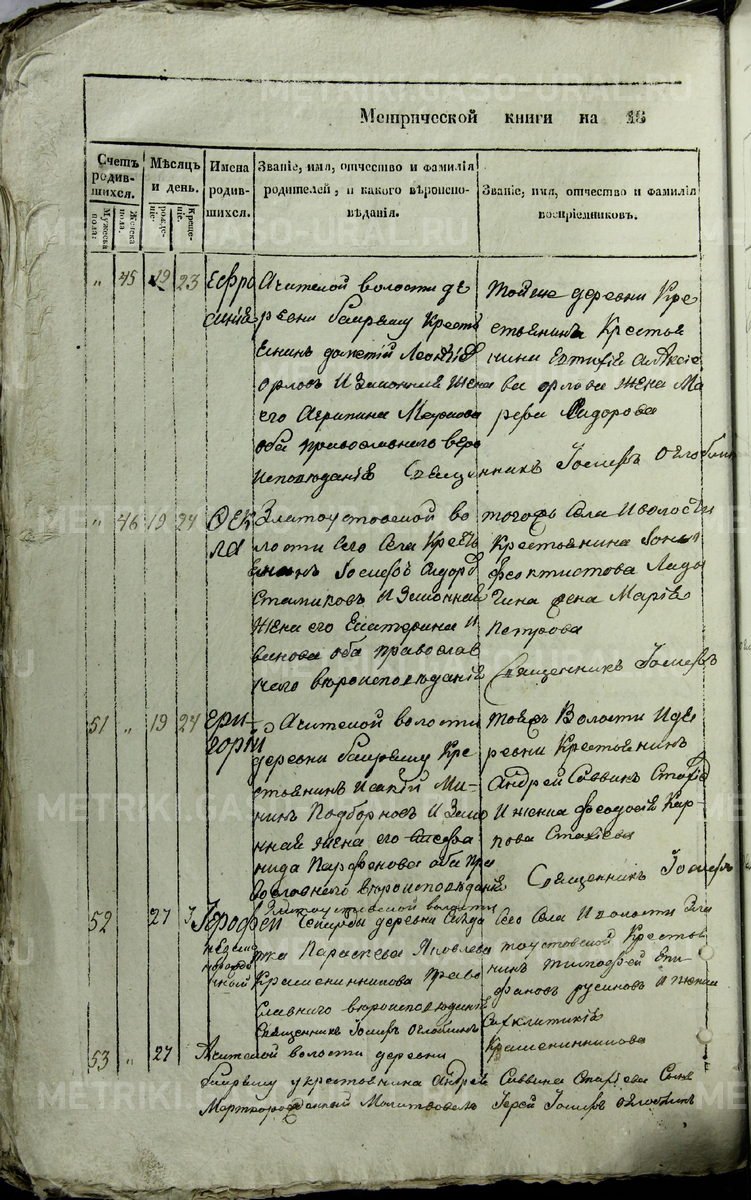 Метрической книги на 18
Счетъ родив-шихся.
Мѣсяцъ и день.
Имена родив-шихся.
Званіе, имя, отчество и фамилія родителей, и какого вѣроиспо-вѣданія.
Званіе, имя, отчество и фамилія воспріемниковъ.
Мужеска пола.
Женска пола.
рожде-ніе.
Креще-ніе.
" 45 19 23
Ефро
синія
Ачитской волости де
ревни
Кресть
янинъ Леонтіев
орловъ И Законная Жена
его Агрипина Маркова
оба православнаго веро
исповѣданія
Тойже деревни Кре
стьянинъ Крестья
нина Евтихій Алексѣе
ва орлова жена Ма
рефа Сидорова
Священникъ Іосифъ Оглоблинъ
" 46 19 24
Ѳек
ла
Златоустовской во
лости Сего Села Кресть
янинъ Іосифъ Сидоров
Стаминовъ И Законная
Жена его Екатерина И
ванова оба православ
наго вѣроисповѣданія
тогожъ Села И волости
Крестьянина
феоктистова Лады
гина жена Марія
Петрова
Священникъ Іосифъ
51 " 19 24
Гри-
горій
Ачитской волости
деревни Кре
стьянинъ Исакій Ми-
нинъ Подборновъ И Зако
нная жена его Степа
нида Парфенова оба пра
вославнаго вѣроисповѣданія
тоежъ Волости И де
ревни Крестьянинъ
Андрей Саввинъ Стахѣев
И жена феодосія Кар-
пова Стахѣева
Священникъ Іосифъ
52 27 3
Іерофей
незако
норожд
нный
Златоустовской волости
деревни
Параскева Яковлева
Крашенинникова право
славнаго вѣроисповѣданія
Священникъ Іосифъ Оглоблинъ
Сего Села И волости Зла
тоустовской Крестья
нинъ тимофей Епи
фановъ русиновъ И жена
Синклитикія
Крашенинникова
53 " 27
Ачитской волости деревни
у крестьянина Андрея Саввина Стахѣева Сынъ
Мертворожденный Молитвовалъ Іерей Іосифъ Оглоблинъ
METRIKI.GASO-URAL.RU